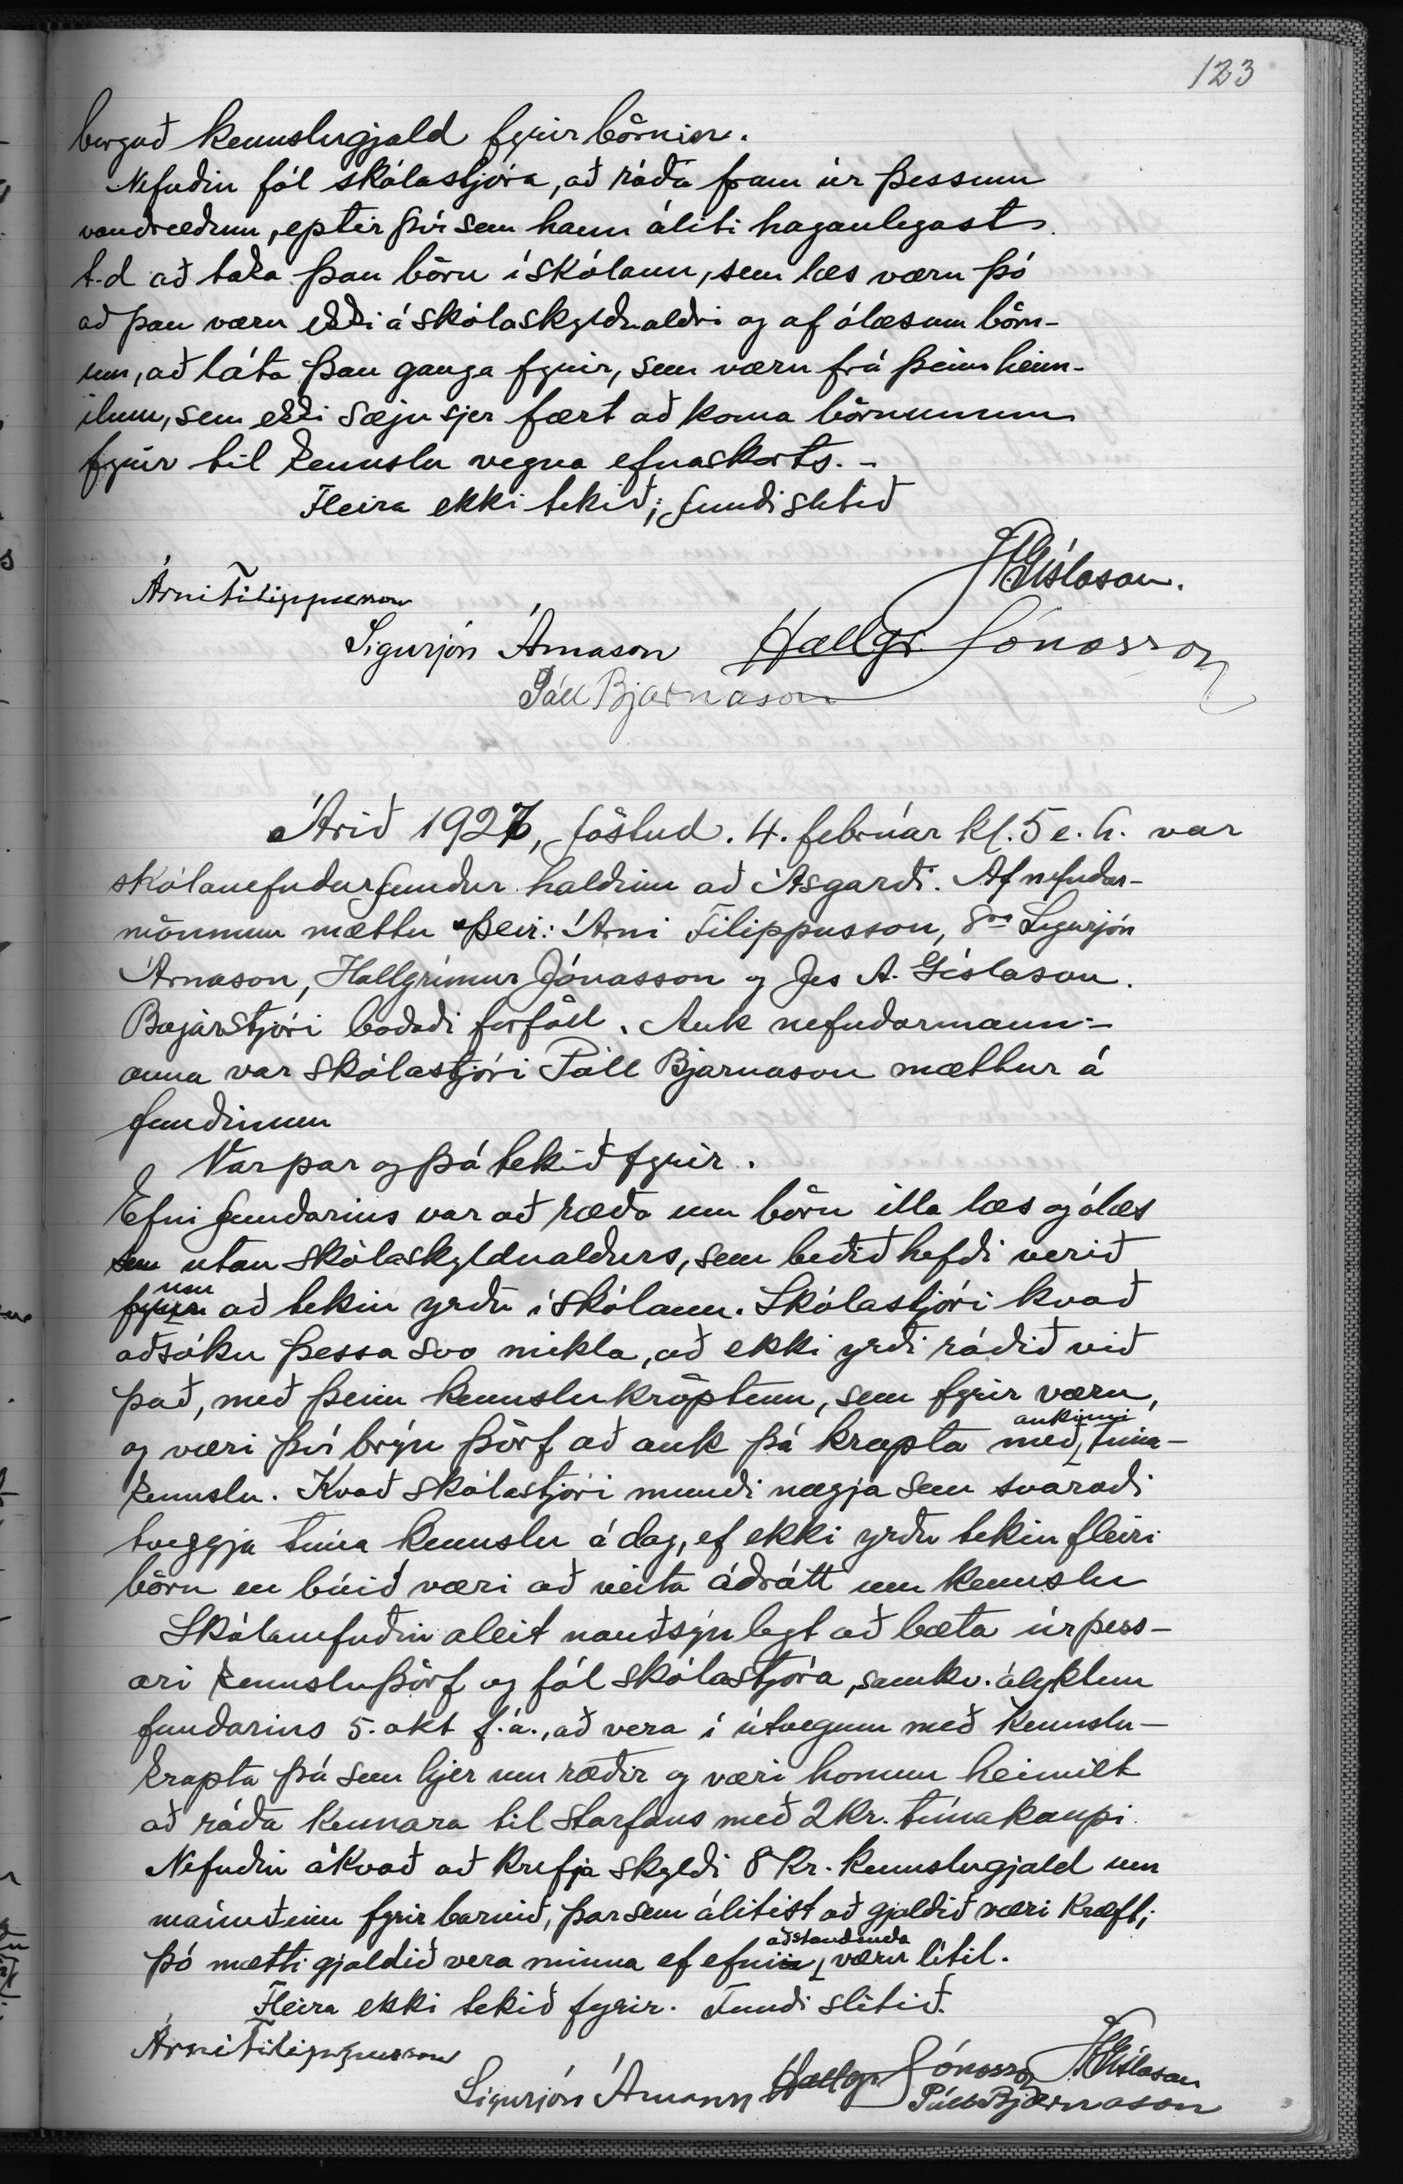 123
borgað kennslugjald fyrir börnin.
Nefndin fól skólastjóra, að ráða fram úr þessum
vandræðum, eptir því sem hann áliti haganlegast
t.d að taka þau börn í skólann, sem læs væru þó
að þau væru ekki á skólaskyldualdri og af ólæsum börn-
um, að láta þau ganga fyrir, sem væru frá þeim heim-
ilum, sem ekki sæju sjer fært að koma börnunum
fyrir til kennslu vegna efnaskorts. -
Fleira ekki tekið; fundi slitið
JAGíslason.
Árni Filippusson
Sigurjón Árnason Hallgr. Jónasson
Páll Bjarnason
Árið 1927, föstud. 4. febrúar kl. 5 e. h. var
skólanefndarfundur haldinn að Ásgarði. Af nefndar-
mönnum mættu þeir: Árni Filippusson, Sigurjón
Árnason, Hallgrímur Jónasson og Jes A. Gíslason.
Bæjarstjóri boðaði forföll. Auk nefndarmann-
anna var skólastjóri Páll Bjarnason mættur á
fundinum
Var þar og þá tekið fyrir.
Efni fundarins var að ræða um börn illa læs og ólæs
utan skólaskyldualdurs, sem beðið hefði verið
um að tekin yrðu í skólann. Skólastjóri kvað
aðsókn þessa svo mikla, að ekki yrði ráðið við
það, með þeim kennslukröptum, sem fyrir væru,
og væri því brýn þörf að auk þá krapta með aukinni tíma-
kennslu. Kvað skólastjóri mundi nægja sem svaraði
tveggja tíma kennslu á dag, ef ekki yrðu tekin fleiri
börn en búið væri að veita ádrátt um kennslu
Skólanefndin áleit nauðsýnlegt að bæta úr þess-
ari kennsluþörf og fól skólastjóra, samkv. ályktun
fundarins 5. okt f.á., að vera í útvegum með kennslu-
krapta þá sem hjer um ræðir og væri honum heimilt
að ráða kennara til starfans með 2 kr. tímakaupi.
Nefndin ákvað að krefja skyldi 8 kr. kennslugjald um
mánuðinn fyrir barnið, þar sem álitist að gjaldið væri kræft;
þó mætti gjaldið vera minna ef efni aðstandenda væru lítil.
Fleira ekki tekið fyrir. Fundi slitið.
Árni Filippusson
Sigurjón Árnason Hallgr Jónasson JAGíslason
Páll Bjarnason